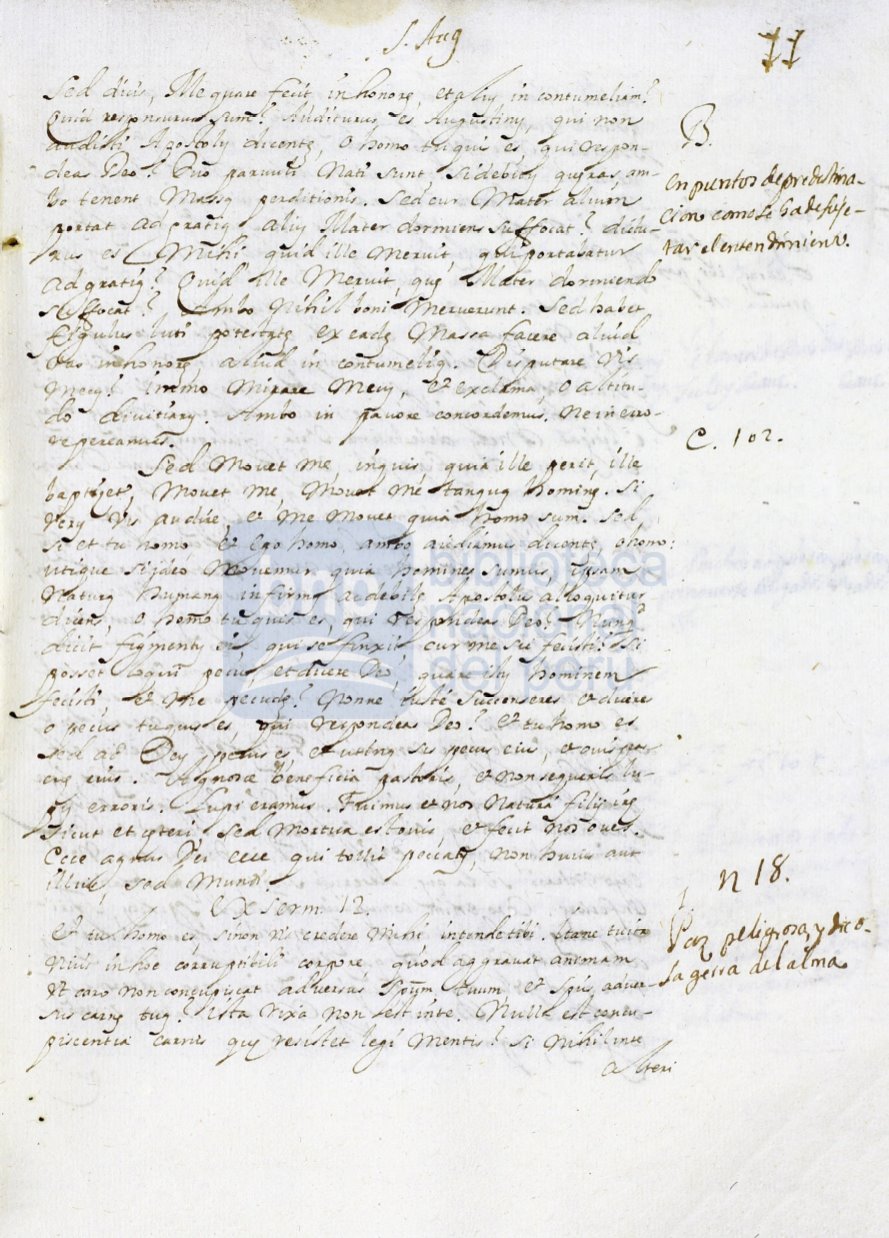 S. Aug
11
Sed dicis, Ille quare fecit in honorē, et aliū in contumeliam?
Quid responsurus sum? Auditurus es Augustinū, qui non
audisti Apostolū dicentē, O homo tu quis es, qui respon-
deas Deo? Duo parvuli Nati sunt si debitū quęras, am-
bo tenent Massā perditionis. Sed cur Mater alium
portat ad gratiā aliū Mater dormiens suffocat? dictu-
rus es Mihi quid ille Meruit, qui portabatur
ad gratiā? Quid ille Meruit, quē Mater dormiendo
suffocat? Ambo Nihil boni Meruerunt. Sed habet
figulus luti potestatē ex eadē Massa facere aliud
vas in honorē aliud in contumeliā. Disputare vis
Mecū? immo Mirare Mecū, et exclama, o altitu-
do divitiarū. Ambo in pavore concordemus. Ne in erro-
re pereamus.
Sed Movet me, inquis, quia ille perit, ille
baptizet, Movet me, Movet me tanquā hominē. Si
verū vis audire, et me Movet quia homo sum. Sed
si et tu homo et Ego homo, ambo audiamus dicentē, o homo:
utique si ideo Movemur, quia homines sumus, ipsam
Naturā humanā infirmā ac debilē Apostolus alloquitur
dicens, o homo tu quis es, qui respondeas Deo? Nunq̃
dicit figmentū ei, qui se finxit cur me sic fecisti? Si
posset loqui pecus, et dicere Deo, quare istū hominem
fecisti, et me pecudē? Nonne iuste succenseres et dicere
o pecus tu quis es, qui respondeas Deo? et tu homo es
sed ad Deū pecus es et utinā sis pecus eius, et ovis pas-
cuę eius. Agnosce beneficia pastoris, et non sequeris lu-
pū erroris. Lupi eramus. Fuimus et nos Natura filij irę
sicut et cęteri sed Mortua est ovis, et fecit nos oves.
Ecce agnus Dei ecce qui tollit peccatū, non huius aut
illius, sed Mundi
Ex serm. 12.
Et tu homo es, si non vis credere Mihi intende tibi. Itane tu ita
vivis in hoc corruptibili corpore quod aggravat animam
Vt caro non concupiscat adversus Spūm tuum et Spūs adver-
sus carnē tuā? Ista rixa non est in te. Nulla est concu-
piscentia carnis quę resistet legi Mentis? Si Nihil in te
alteri
B.
en puntos de predestina-
cion como se ha de suje-
tar el entendimiento.
C. 102.
n 18.
1.
Paz peligrosa, y dico-
sa gerra del alma
biblioteca
nacional
del perú